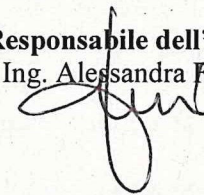 Responsabile dell'
Ing. Alessandra F